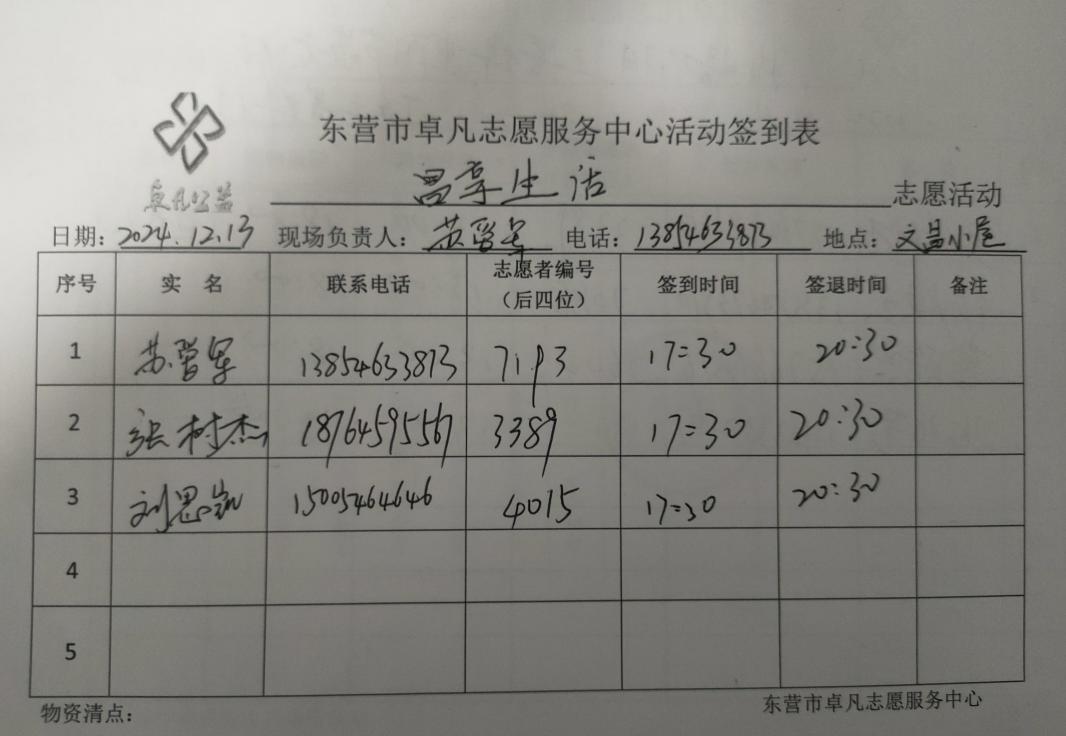 东营市卓凡志愿服务中心活动签到表
卓凡公益
昌享生活 志愿活动
日期：2024.12.13 现场负责人：苏晋军 电话：13854633873 地点：文昌小屋
序号 实 名 联系电话 志愿者编号（后四位） 签到时间 签退时间 备注
1 苏晋军 13854633873 7193 17:30 20:30
2 张树杰 18764595567 3389 17:30 20:30
3 刘思凯 15005464646 4015 17:30 20:30
4
5
物资清点： 东营市卓凡志愿服务中心